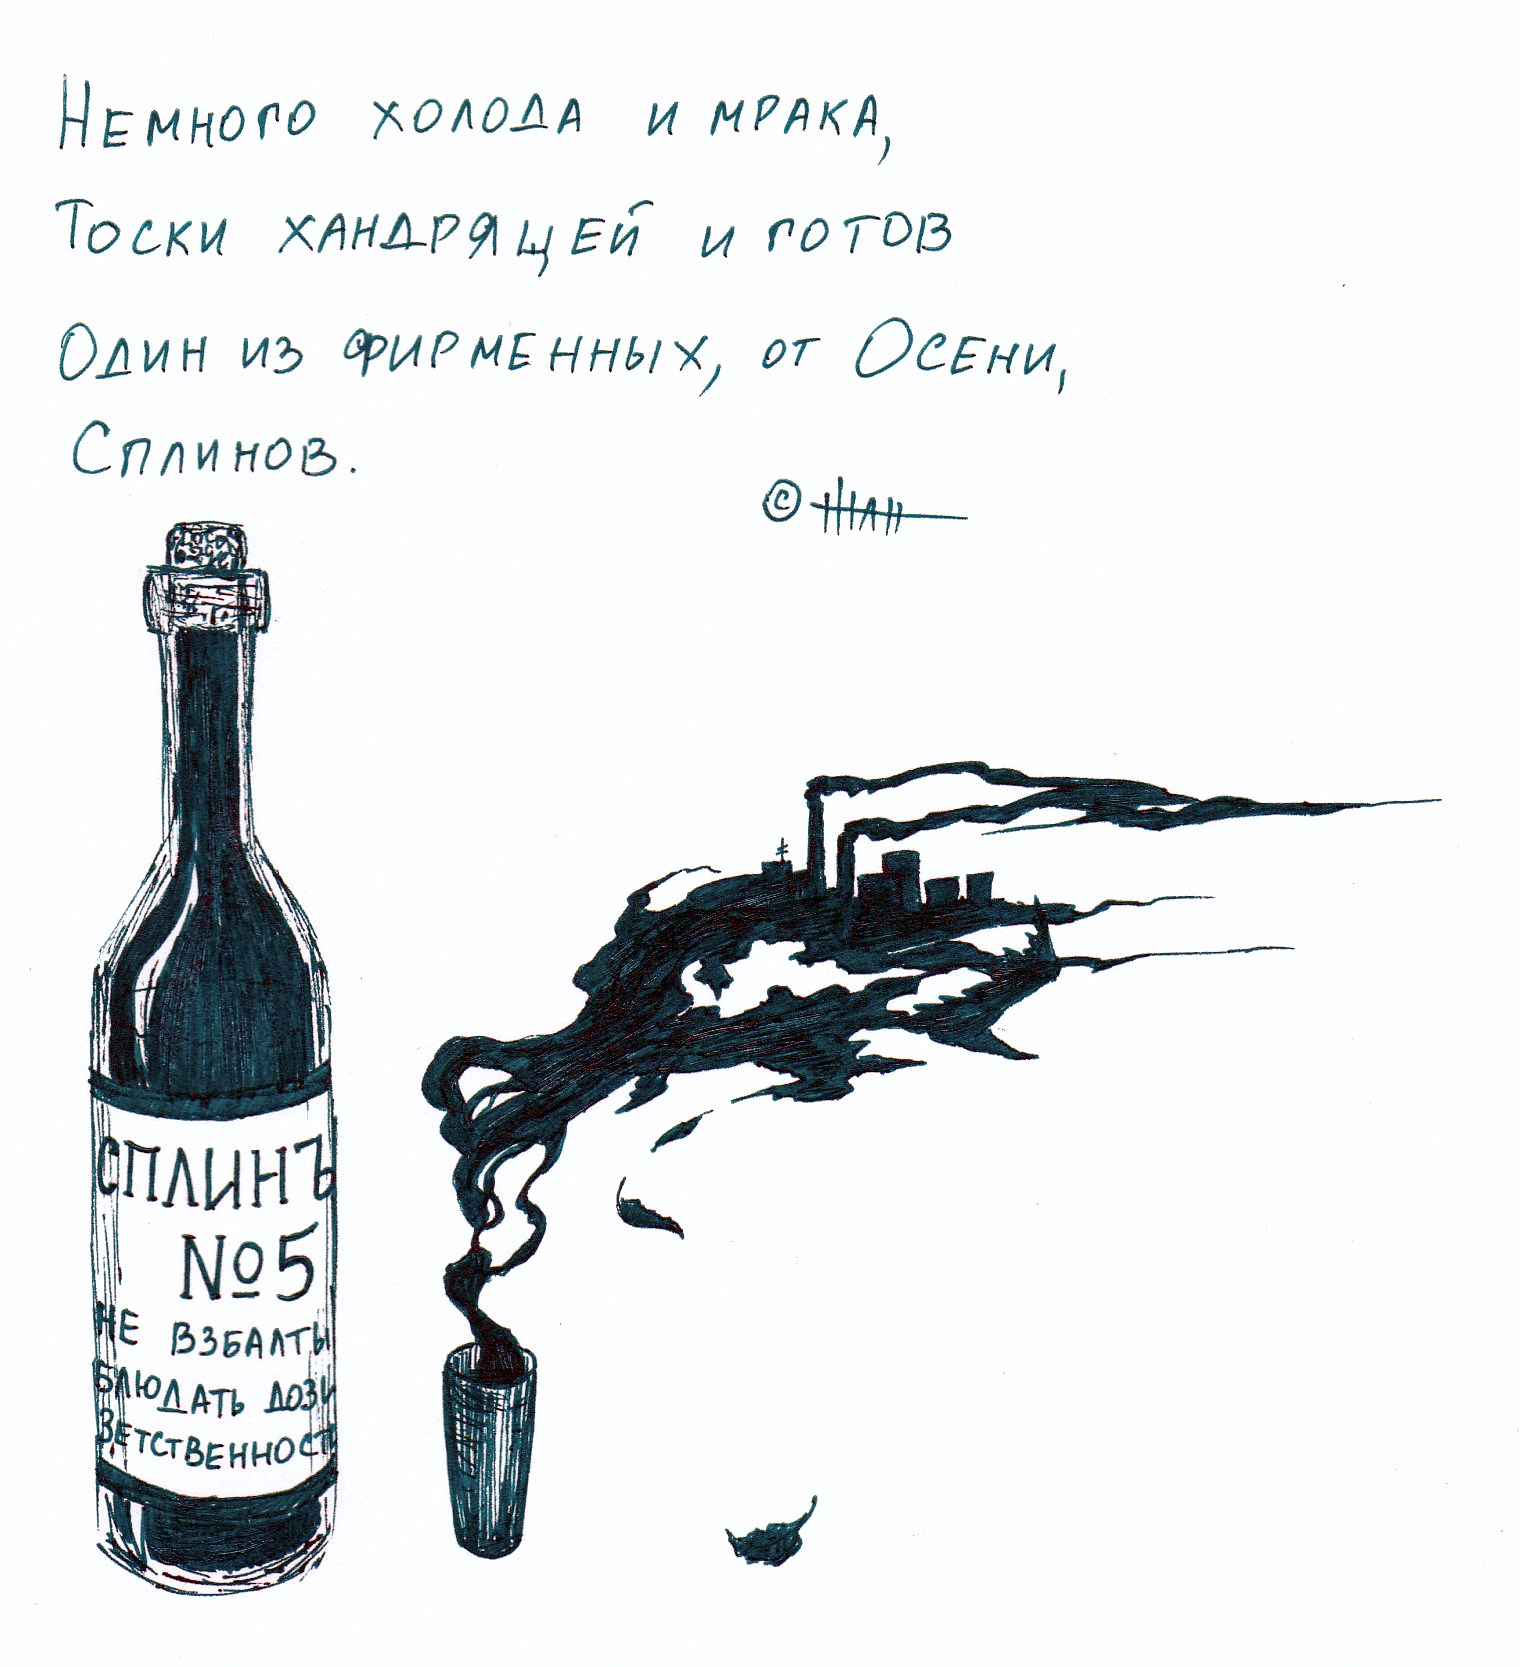 Немного холода и мрака,
Тоски хандрящей и готов
Один из фирменных, от Осени,
Сплинов.
© Жан
СПЛИНЪ
№5
НЕ ВЗБАЛТЫ
БЛЮДАТЬ ДОЗИ
ВЕТСТВЕННОСТ